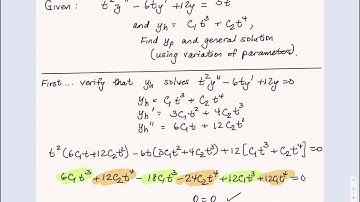 Given : t²y'' - 6ty' + 12y = 5t
and yₕ = C₁t³ + C₂t⁴,
Find yₚ and general solution
(using variation of parameters).
First... verify that yₕ solves t²y'' - 6ty' + 12y = 0
yₕ = C₁t³ + C₂t⁴
yₕ' = 3C₁t² + 4C₂t³
yₕ'' = 6C₁t + 12C₂t²
t²(6C₁t + 12C₂t²) - 6t(3C₁t² + 4C₂t³) + 12[C₁t³ + C₂t⁴] = 0
6C₁t³ + 12C₂t⁴ - 18C₁t³ - 24C₂t⁴ + 12C₁t³ + 12C₂t⁴ = 0
0 = 0 ✓